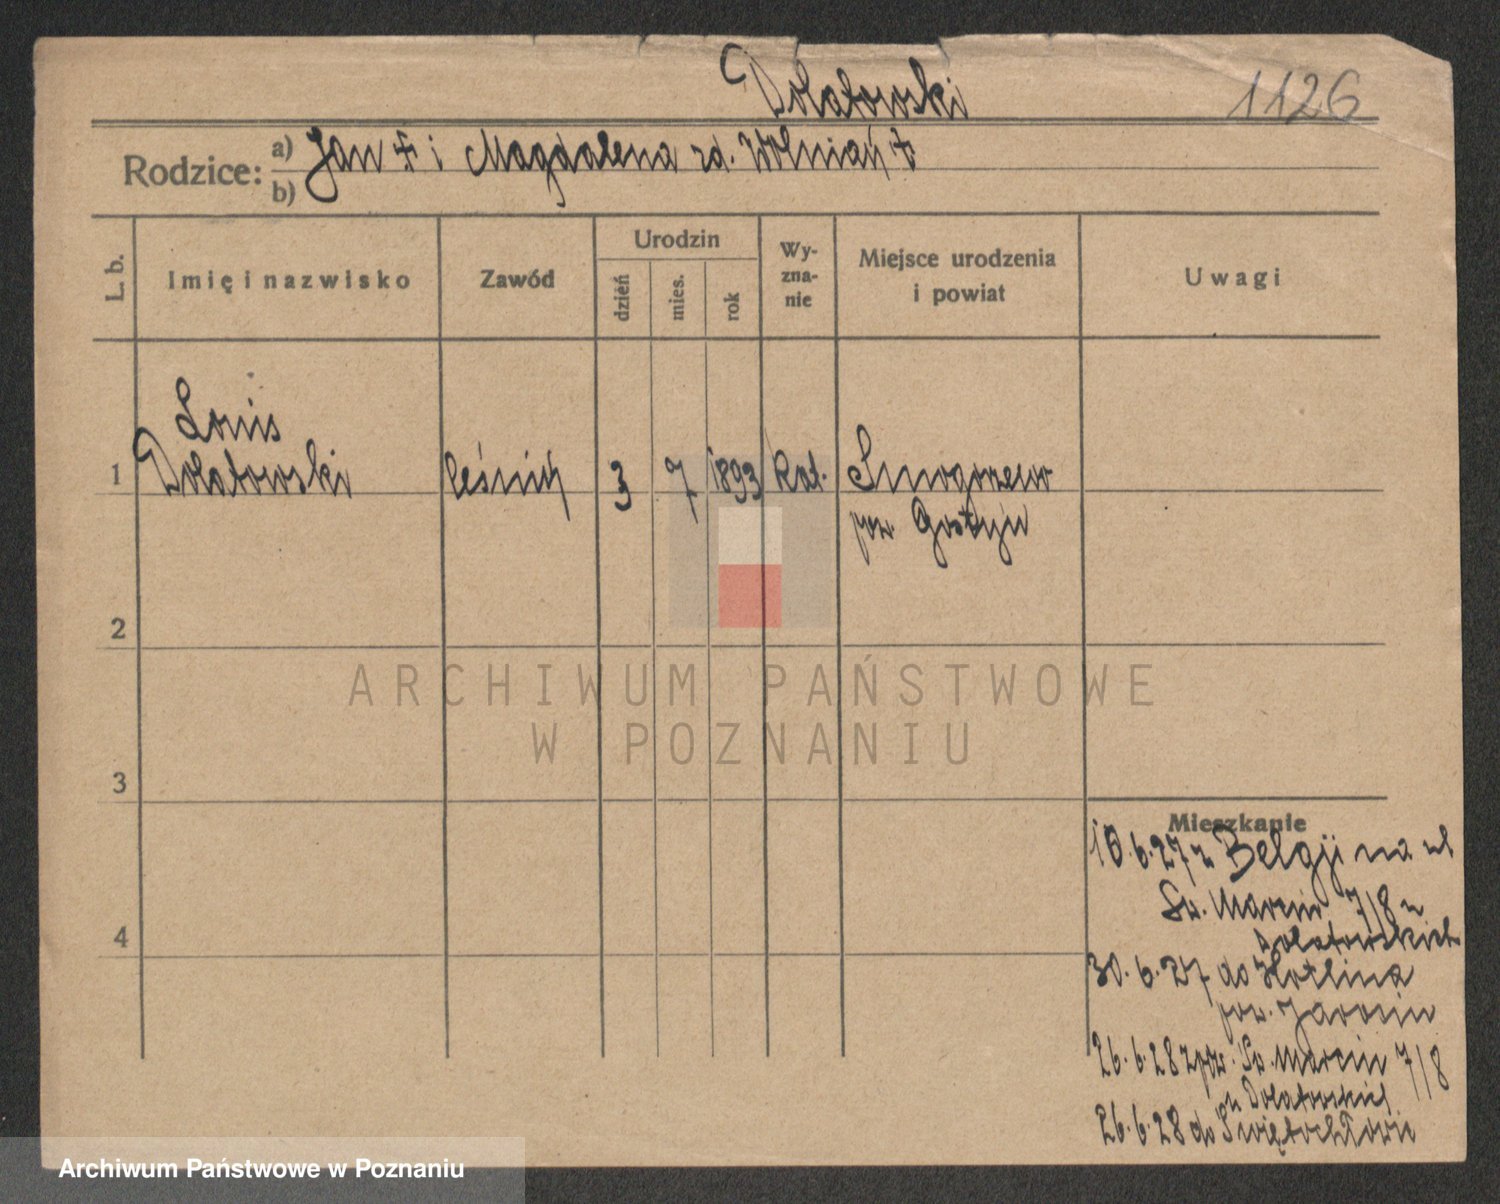 Dolatowski
1126
Rodzice: a) Jan † i Magdalena zd. Wolniak †
b)
L. b.
Imię i nazwisko
Zawód
Urodzin
dzień
mies.
rok
Wy-
zna-
nie
Miejsce urodzenia
i powiat
Uwagi
Louis
1 Dolatowski leśnik 3 7 1893 kat. Smogorzewo
pow. Gostyń
2
3
4
Mieszkanie
10.6.27 z Belgji na ul
Św. Marcin 7/8 u
Dolatowskich
30.6.27 do Kotlina
pow. Jarocin
26.6.28 zpow. Św. Marcin 7/8
u Dolatowskich
26.6.28 do Świętochłowic
ARCHIWUM PAŃSTWOWE
W POZNANIU
Archiwum Państwowe w Poznaniu